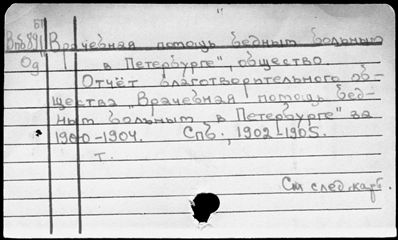 Б
Впб891 Врачебная помощь бедным больным
Од в Петербурге", общество.
Отчёт благотворительного об-
щества „Врачебная помощь бед-
ным больным в Петербурге" за
1900-1904. Спб., 1902-1905.
т.
См след. карт.